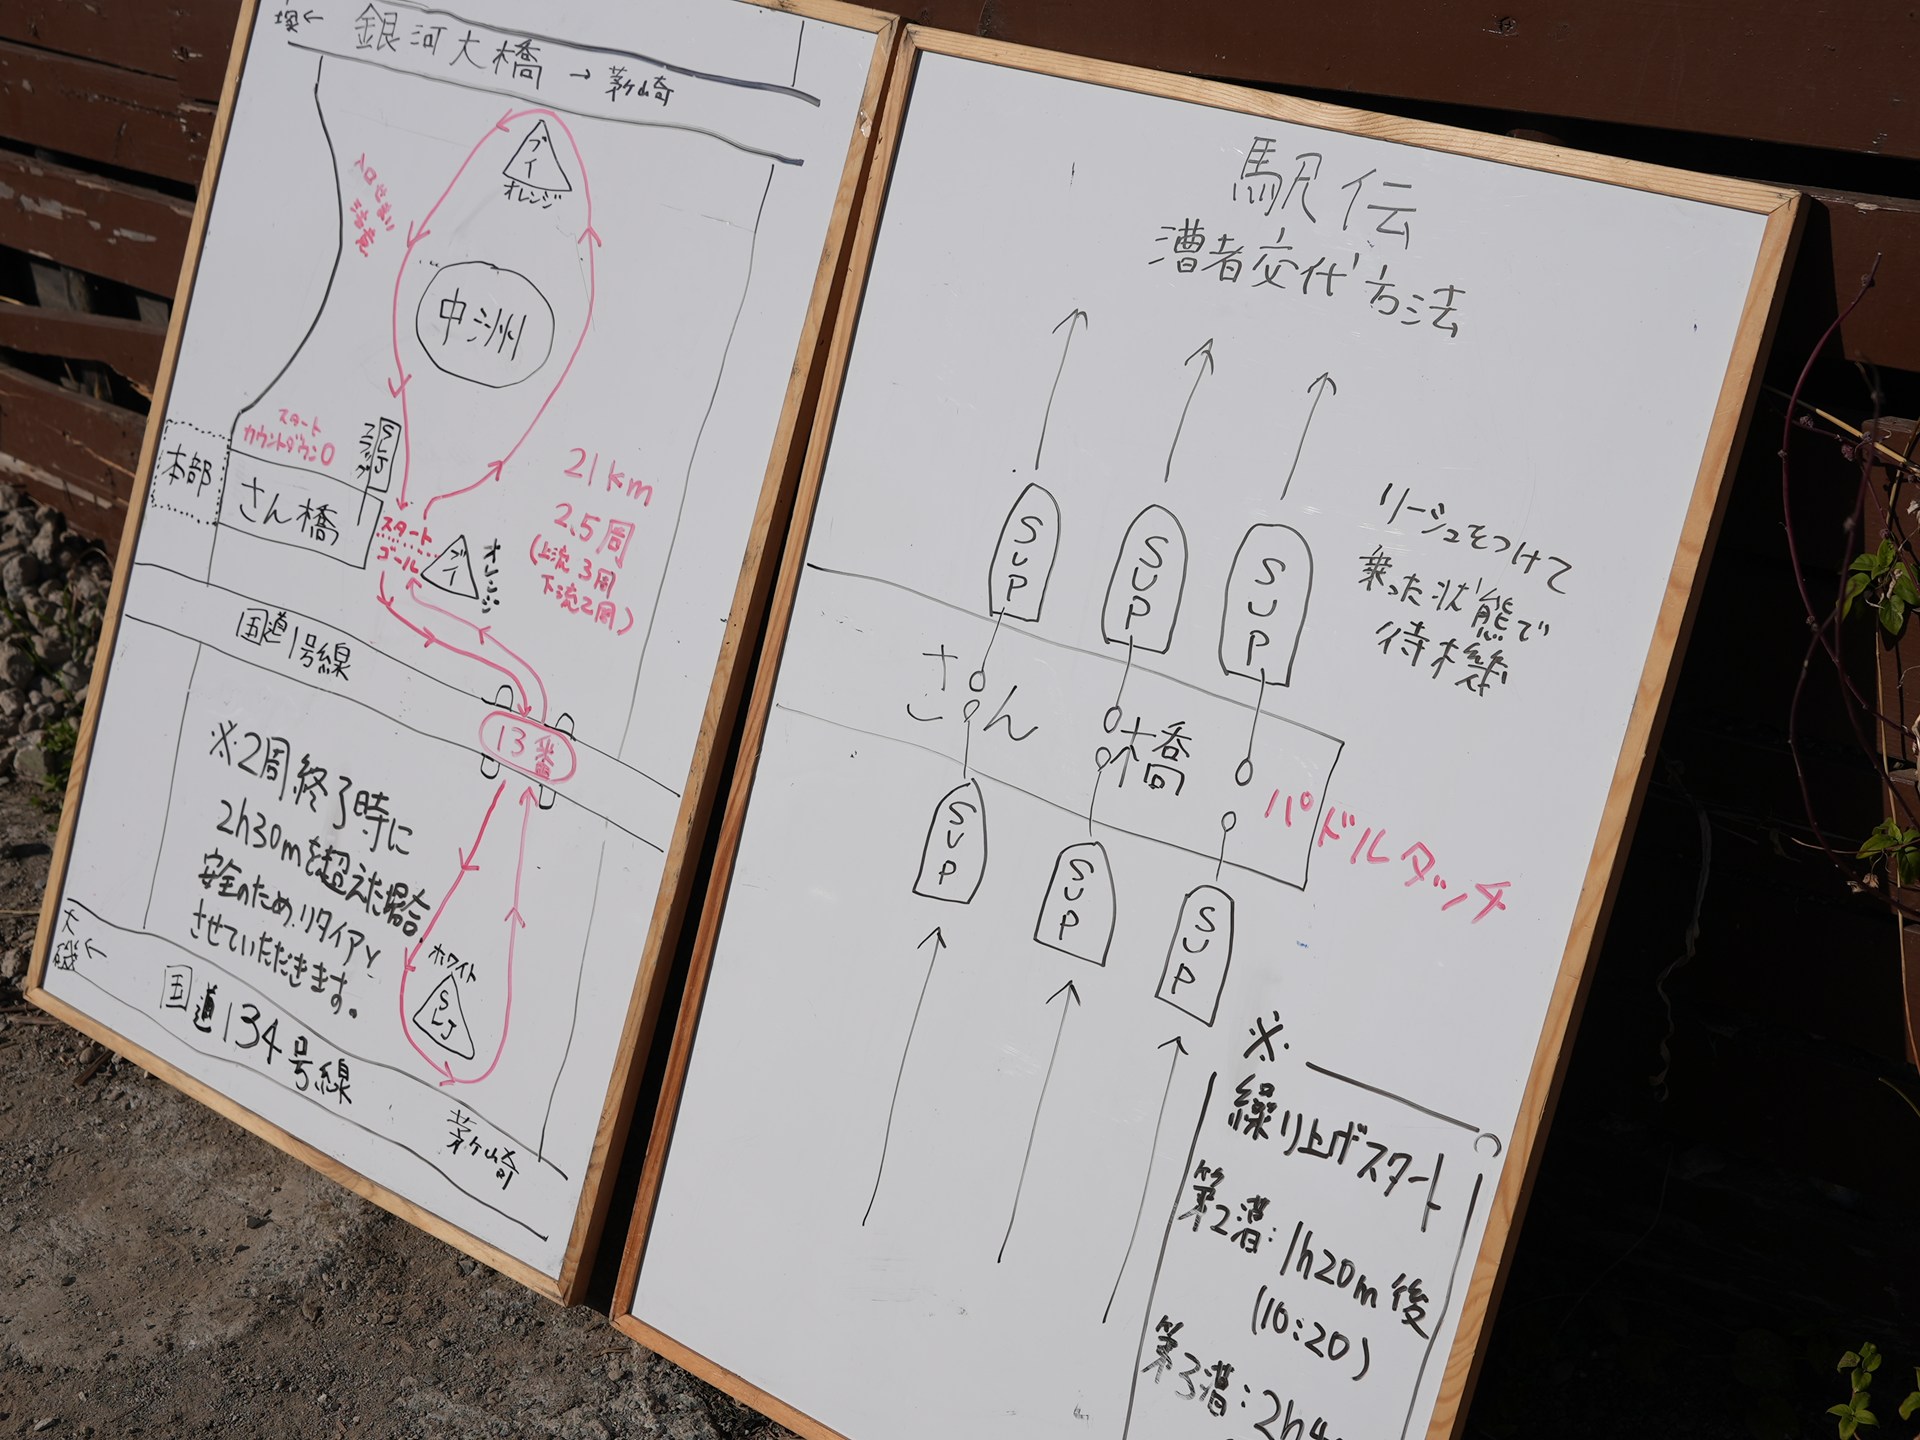 塚←
銀河大橋
→茅ヶ崎
ブイ
オレンジ
入口せまい
注意
中洲
スタート
カウントダウン0
SLJ
フラッグ
本部
さん橋
スタート
ゴール
ブイ
オレンジ
21km
2.5周
(上流3周
下流2周)
国道1号線
13番
※2周終了時に
2h30mを超えた場合、
安全のため、リタイアと
させていただきます。
大磯←
ホワイト
SLJ
国道134号線
茅ヶ崎
駅伝
漕者交代方法
SUP
SUP
SUP
リーシュをつけて
乗った状態で
待機
さん橋
パドルタッチ
SUP
SUP
SUP
※
繰り上げスタート
第2漕:1h20m後
(10:20)
第3漕:2h4